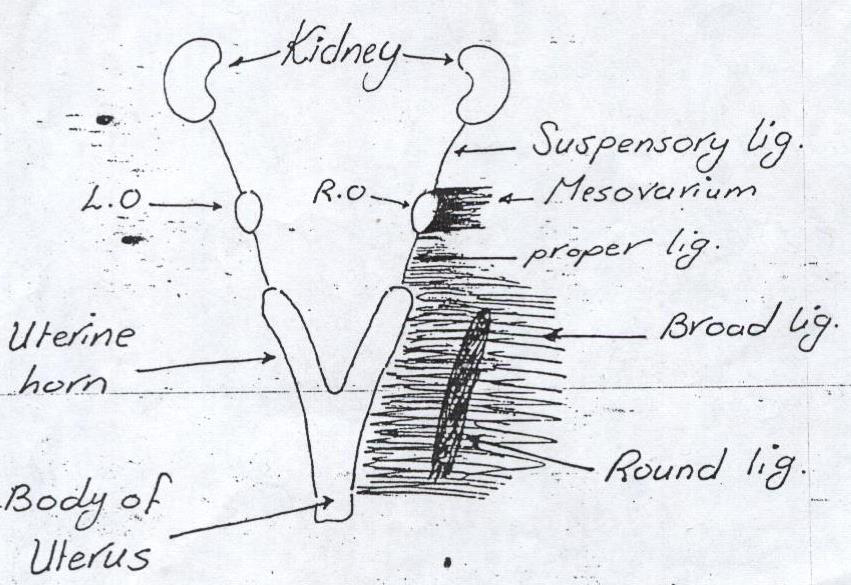 Kidney
Suspensory lig.
L.O
R.O
Mesovarium
proper lig.
Uterine
horn
Broad lig.
Round lig.
Body of
Uterus